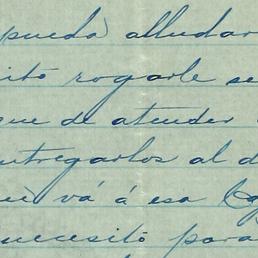 pueda alludar
sito rogarle se
que de atender
ntregarlos al d
vá á esa
necesito para